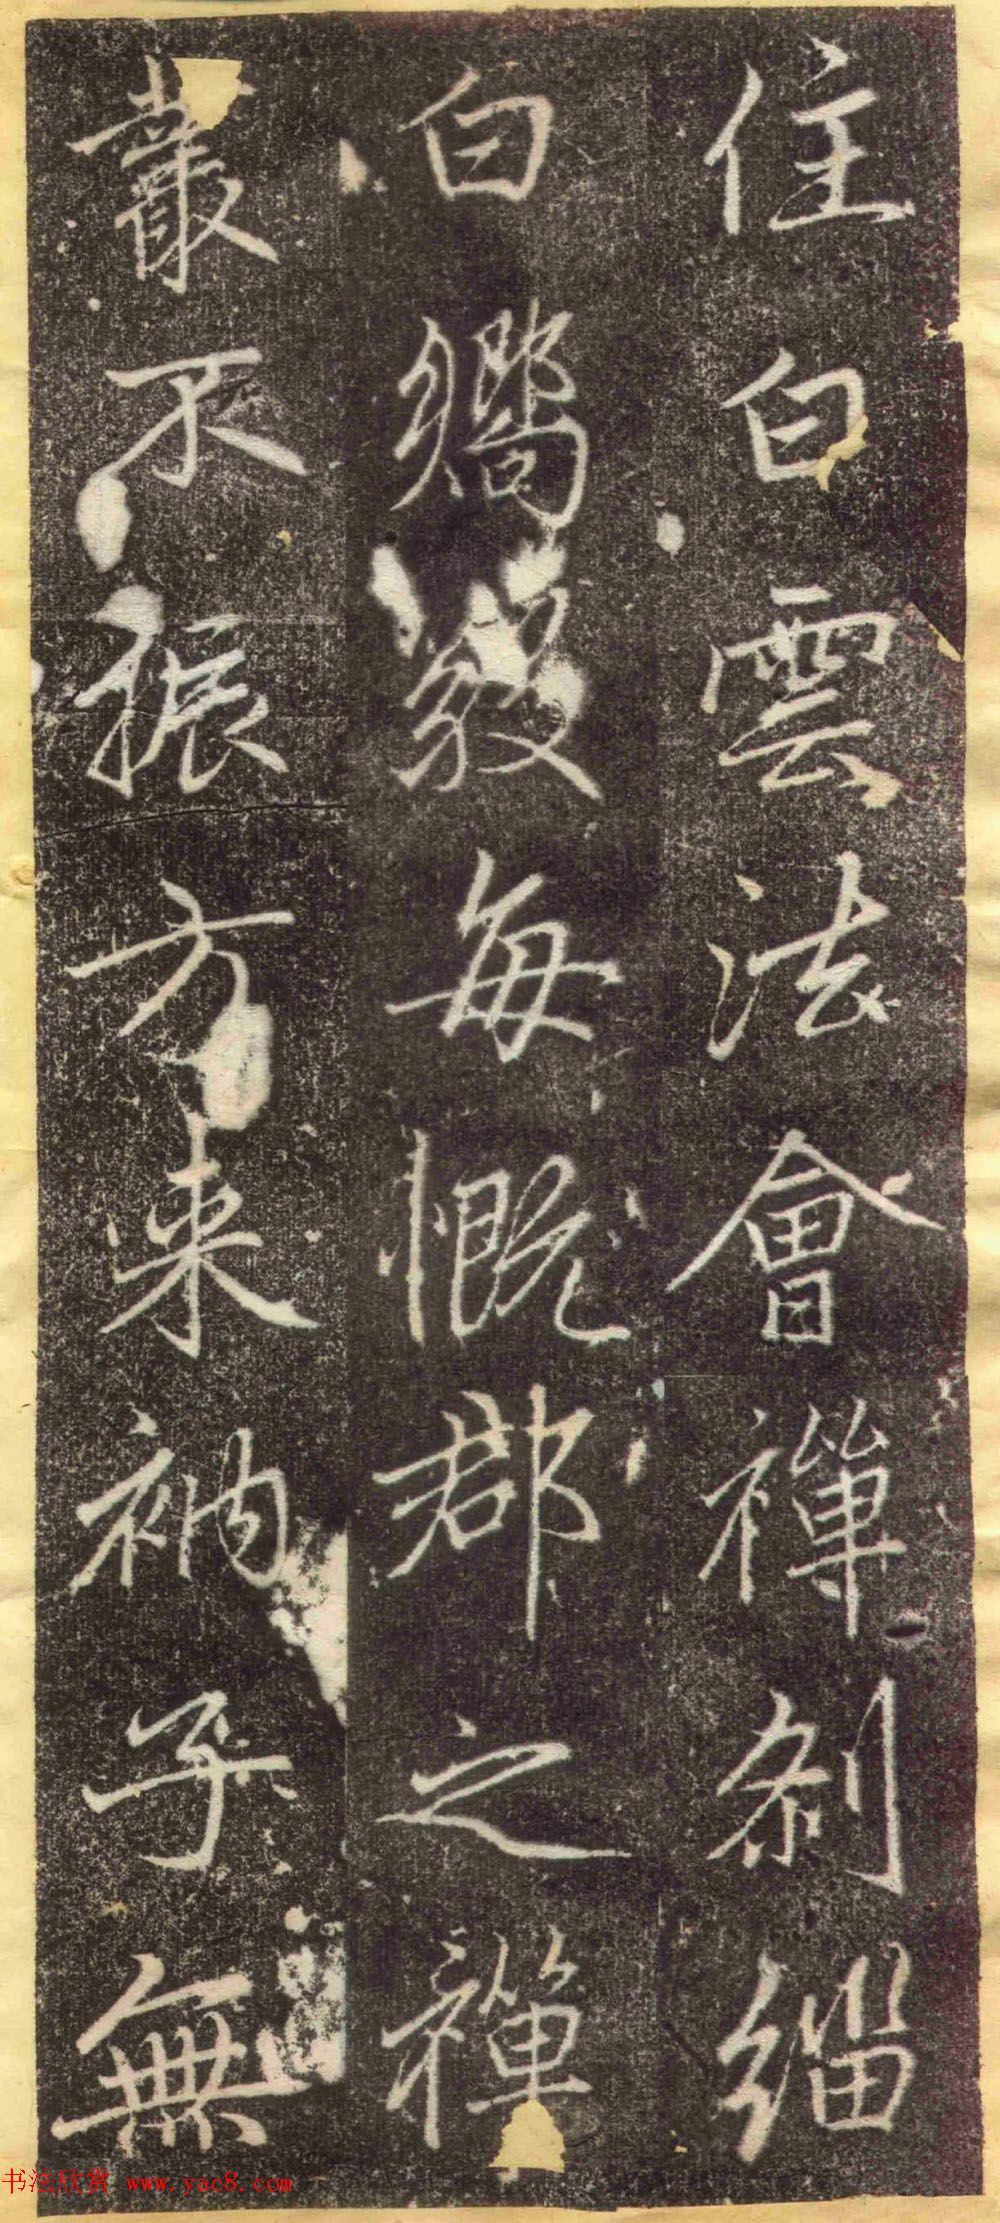 住白雲法會禪剎緇
白嚮敬每慨郡之禪
叢不振方来衲子無
书法欣赏 www.yac8.com